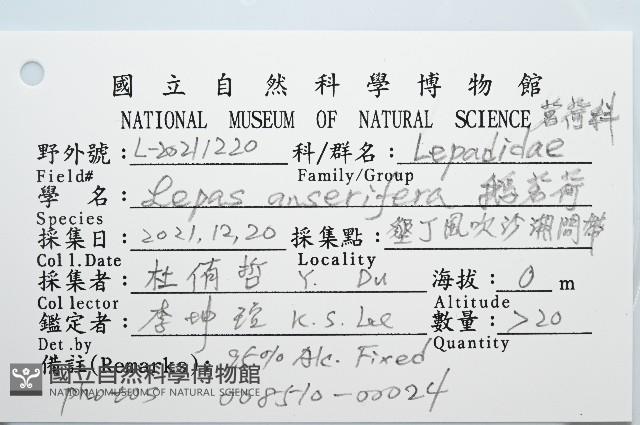 國立自然科學博物館
NATIONAL MUSEUM OF NATURAL SCIENCE 茗荷科
野外號：L-20211220 科/群名：Lepadidae
Field# Family/Group
學 名：Lepas anserifera 鵝茗荷
Species
採集日：2021,12,20 採集點：墾丁風吹沙潮間帶
Coll.Date Locality
採集者：杜侑哲 Y. Du 海拔：0 m
Collector Altitude
鑑定者：李坤瑄 K.S. Lee 數量：>20
Det.by Quantity
備註(Remarks)：95% Alc. Fixed
photos 008510-00024
國立自然科學博物館
NATIONAL MUSEUM OF NATURAL SCIENCE